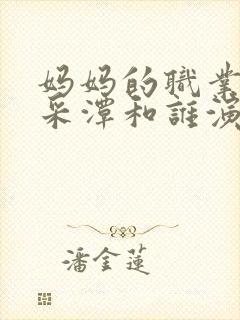 妈妈的職業
采潭和誰演
潘金蓮